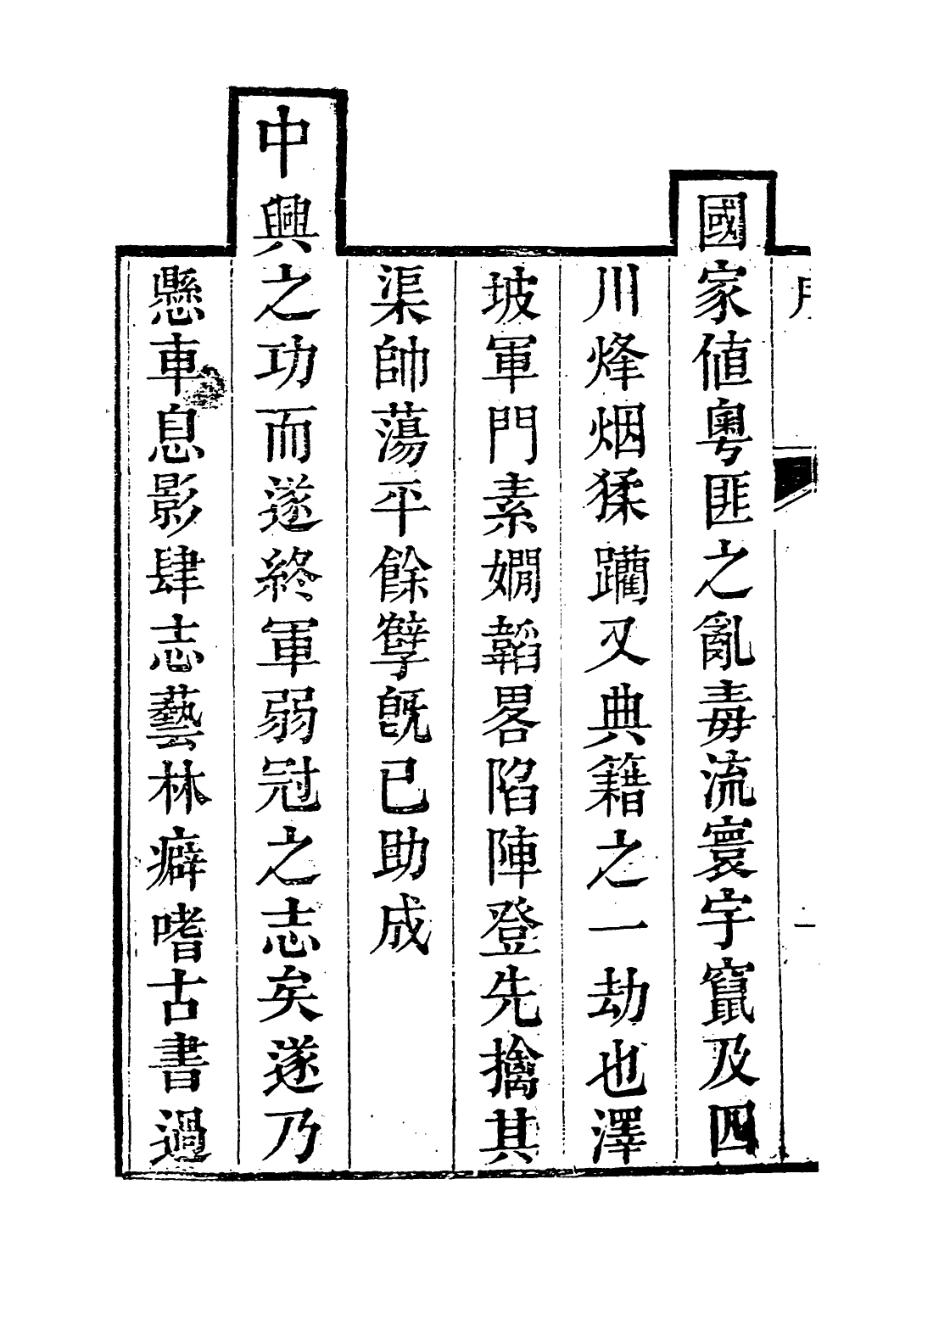 國家値粵匪之亂毒流寰宇竄及四
川烽烟猱躪又典籍之一劫也澤
坡軍門素嫺韜畧陷陣登先擒其
渠帥蕩平餘孽旣已助成
中興之功而遂終軍弱冠之志矣遂乃
懸車息影肆志藝林癖嗜古書過